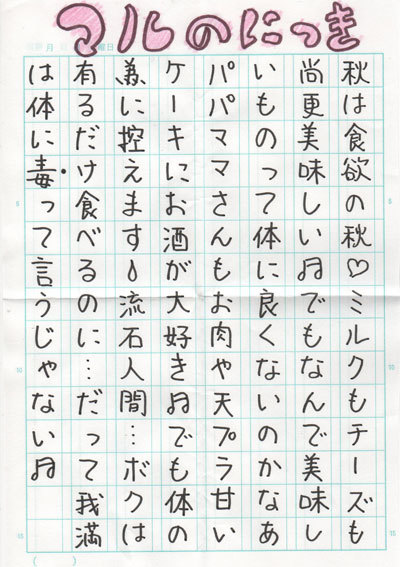 マルのにっき
月 曜日
秋は食欲の秋♡ミルクもチーズも
尚更美味しい♫でもなんで美味し
いものって体に良くないのかなあ
パパママさんもお肉や天プラ甘い
ケーキにお酒が大好き♫でも体の
為に控えます💧流石人間…ボクは
有るだけ食べるのに…だって我満
は体に毒・って言うじゃない♫